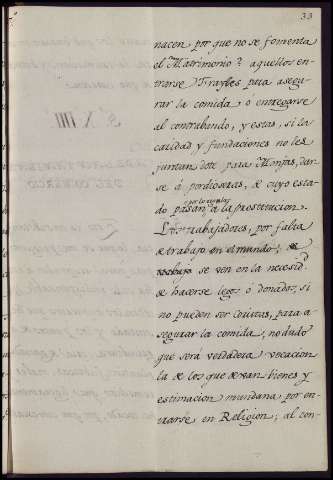 33
nacen por que no se fomenta
el Matrimonio? aquellos en-
trarse Frayles para asegu-
rar la comida, o entregarse
al contrabando, y estas, si la
caridad y fundaciones no les
juntan dote para Monjas, dar-
se á pordioseras, de cuyo esta-
do pasan por lo regular á la prostitucion.
Los trabajadores, por falta
de trabajo en el mundo,
se ven en la necesid.d
de hacerse legos ó donados, si
no pueden ser Coristas, para a-
segurar la comida; no dudo
que será verdadera vocacion
la de los que dexan bienes y
estimacion mundana por en-
trarse en Religion; al con-